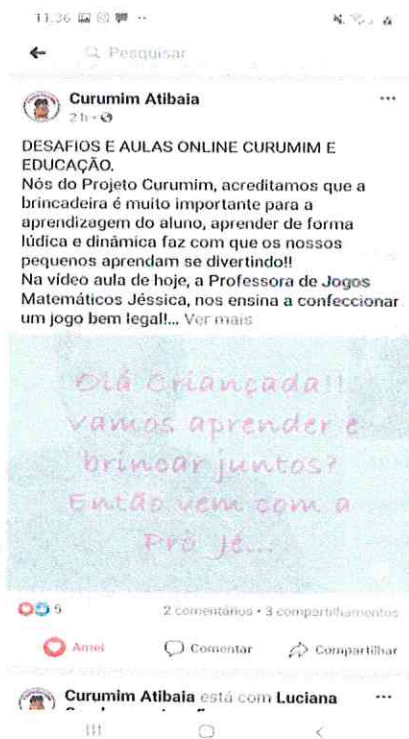 11:36
Pesquisar
Curumim Atibaia
2 h
DESAFIOS E AULAS ONLINE CURUMIM E
EDUCAÇÃO.
Nós do Projeto Curumim, acreditamos que a
brincadeira é muito importante para a
aprendizagem do aluno, aprender de forma
lúdica e dinâmica faz com que os nossos
pequenos aprendam se divertindo!!
Na vídeo aula de hoje, a Professora de Jogos
Matemáticos Jéssica, nos ensina a confeccionar
um jogo bem legal!... Ver mais
Olá Criançada!!
vamos aprender e
brincar juntos?
Então vem com a
Pro Jé...
9
2 comentários • 3 compartilhamentos
Amei
Comentar
Compartilhar
Curumim Atibaia está com Luciana